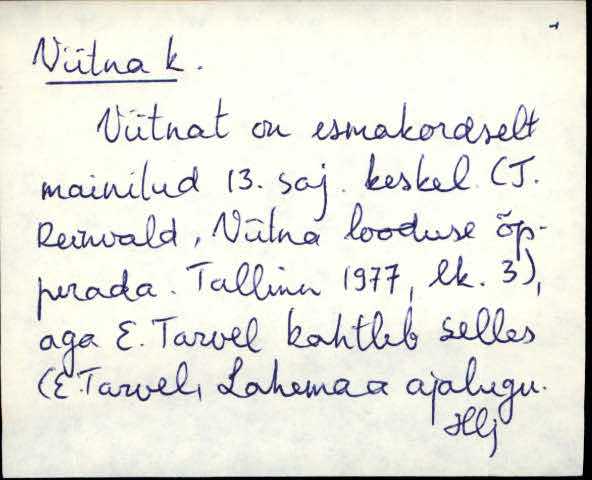 Viitna k.
Viitnat on esmakordselt
mainitud 13. saj. keskel (J.
Reinvald, Viitna looduse õp-
perada. Tallinn 1977, lk. 3),
aga E. Tarvel kahtleb selles
(E. Tarvel, Lahemaa ajalugu.